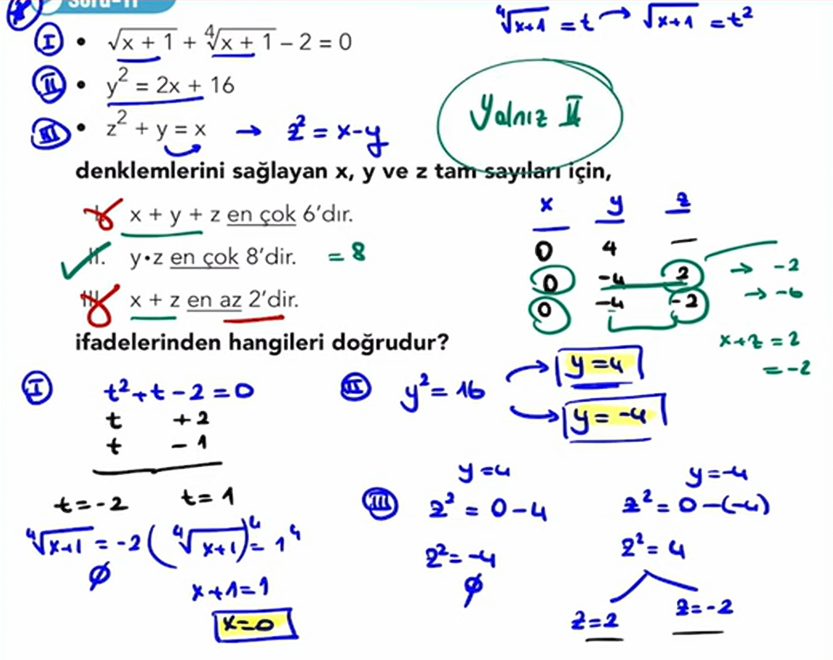 Soru-11
⁴√x+1 = t → √x+1 = t²
I • √x + 1 + ⁴√x + 1 – 2 = 0
II • y² = 2x + 16
III • z² + y = x → z² = x-y
Yalnız II
denklemlerini sağlayan x, y ve z tam sayıları için,
x + y + z en çok 6'dır.
II. y•z en çok 8'dir. = 8
III. x + z en az 2'dir.
ifadelerinden hangileri doğrudur?
x y z
0 4 —
0 -4 2 → -2
0 -4 -2 → -6
x+z = 2
= -2
I t²+t-2=0
t +2
t -1
t=-2 t=1
⁴√x+1 = -2 (⁴√x+1)⁴ = 1⁴
∅ x+1=1
x=0
II y² = 16
y=4
y=-4
III y=4
z² = 0-4
z² = -4
∅
y=-4
z² = 0-(-4)
z² = 4
z=2 z=-2